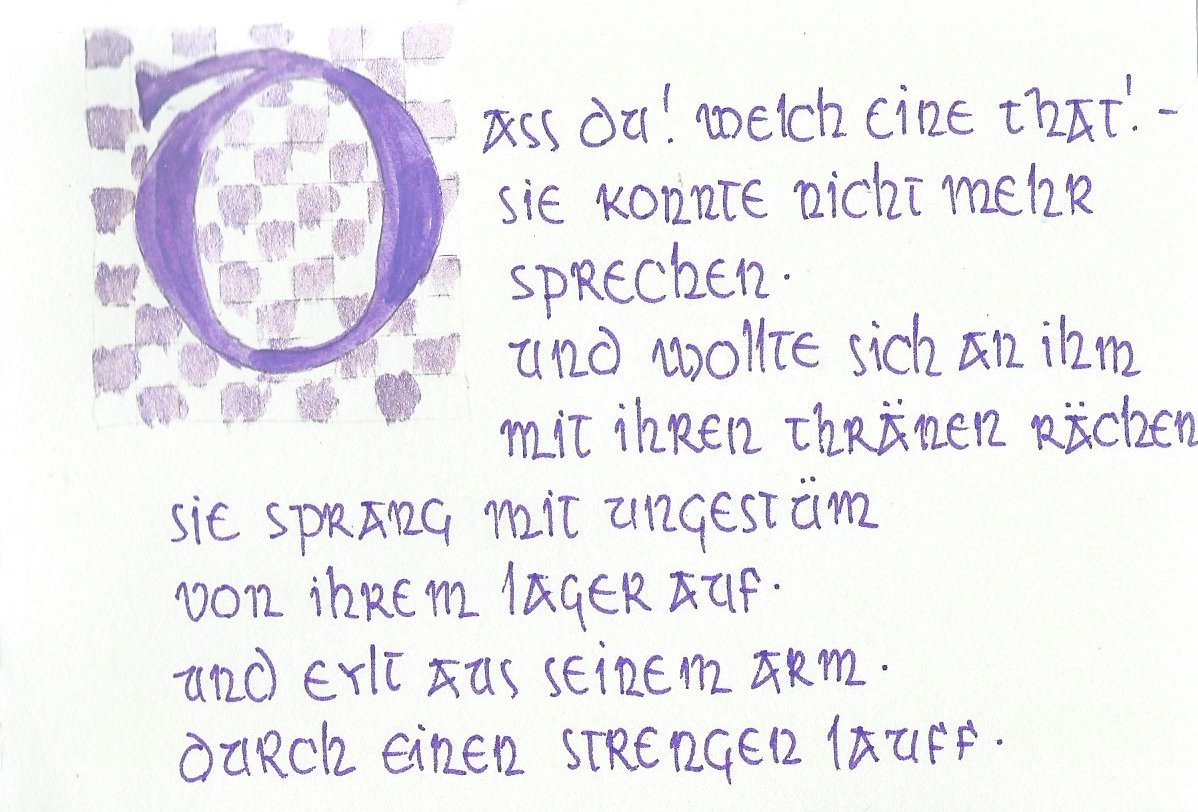 Dass du! welch eine that! -
sie konnte nicht mehr
sprechen.
und wollte sich an ihm
mit ihren thränen rächen
sie sprang mit ungestüm
von ihrem lager auf.
und eylt aus seinem arm.
durch einen strengen lauff.